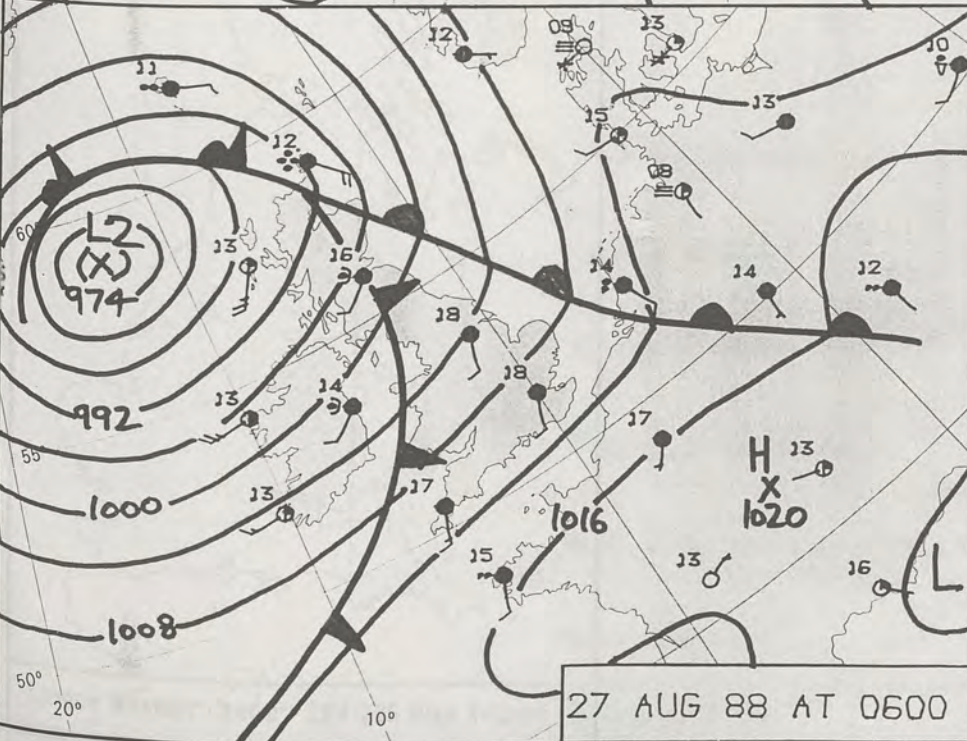 12
09
13
10
11
13
15
12
08
60°
L2
(X)
974
13
16
14
14
12
18
18
992
13
14
17
H
13
X
1020
55
1000
13
17
1016
15
13
16
L
1008
50°
20°
10°
27 AUG 88 AT 0600